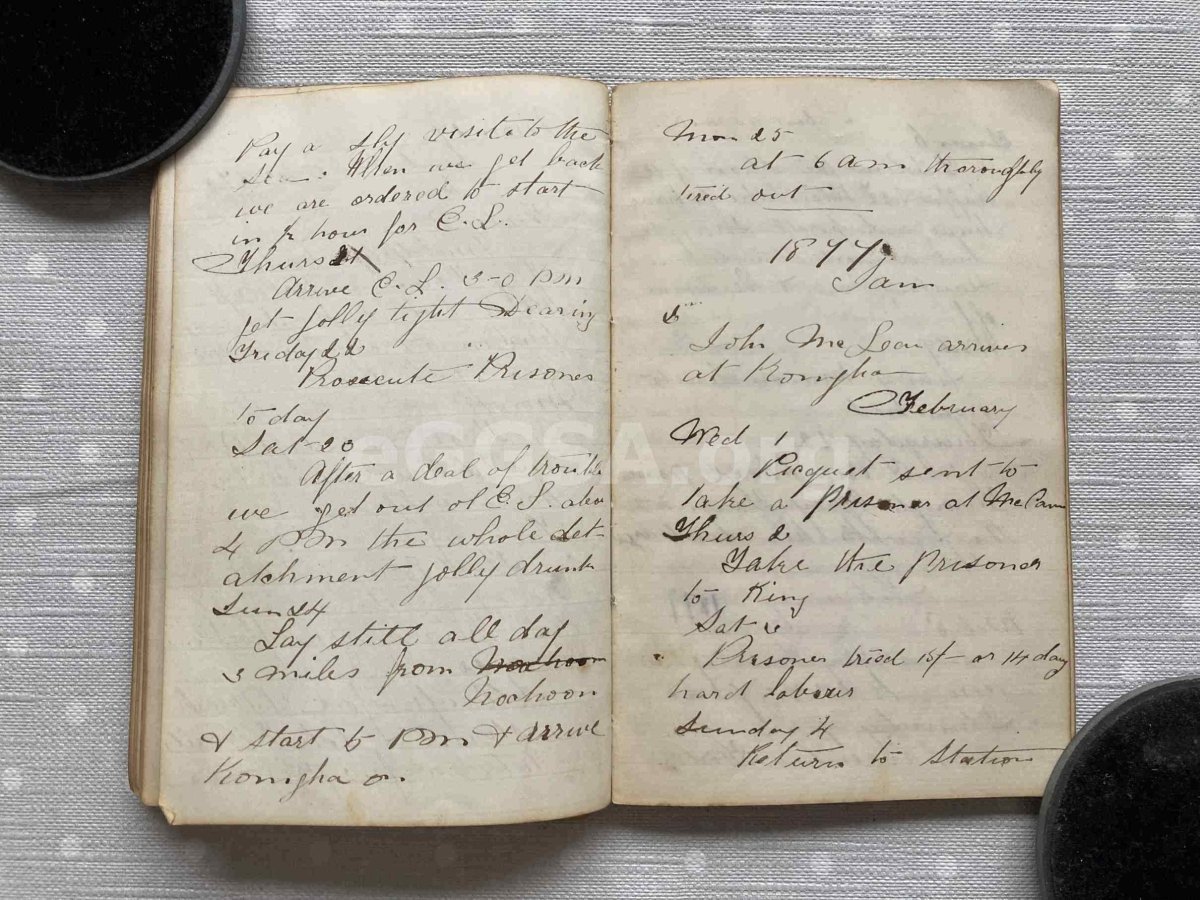 Pay a sly visit to the
Sea. When we get back
we are ordered to start
in ½ hour for E. L.
Thurs 21
Arrive E. L. 3-0 P.M
get jolly tight
Friday 22
Prosecute Prisones
to day
Sat 23
After a deal of trouble
we get out of E. L. abou
4 P.M the whole det-
atchment jolly drunk
Sun 24
Lay still all day
3 miles from Noohoon
Noohoon
& start 6 P.M & arrive
Komgha on
Mon 25
at 6 am thoroughly
tired out
1877
Jan
John McLean arrives
at Komgha
February
Wed 1
Picquet sent to
take a Prisoner at McCann
Thurs 2
Take the Prisoner
to King
Sat
Prisoner tried 15/- or 14 day
hard labour
Sunday 4
Return to Station
eGGSA.org